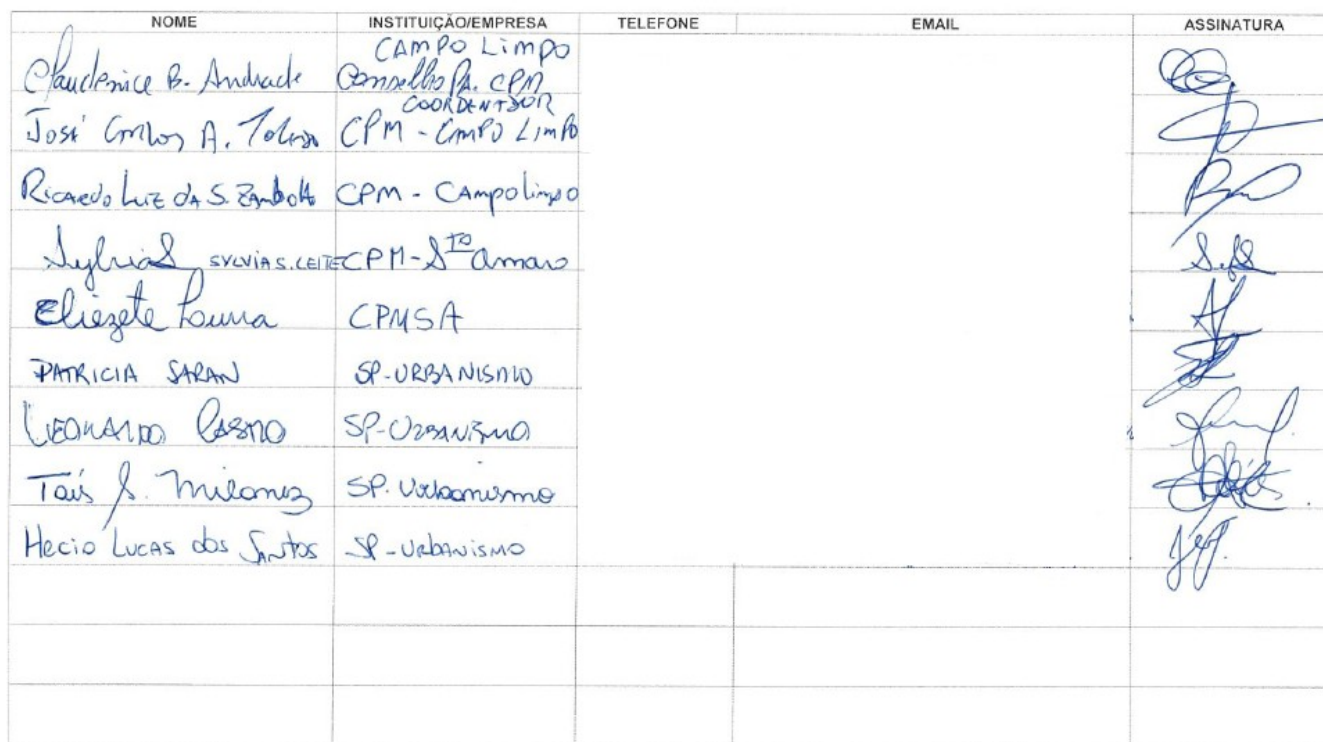 NOME INSTITUIÇÃO/EMPRESA TELEFONE EMAIL ASSINATURA
Claudenice B. Andrade CAMPO LIMPO
Conselho Pa. CPM
José Carlos A. COORDENADOR
CPM - CAMPO LIMPO
Ricardo Luiz da S. Zambotti CPM - Campo Limpo
Sylvia S SYLVIA S. LEITE CPM - Sto Amaro
Eliezete CPMSA
PATRICIA SARAN SP-URBANISMO
LEONARDO CASTRO SP-URBANISMO
Taís S. Milanez SP. Urbanismo
Hecio Lucas dos Santos SP-Urbanismo